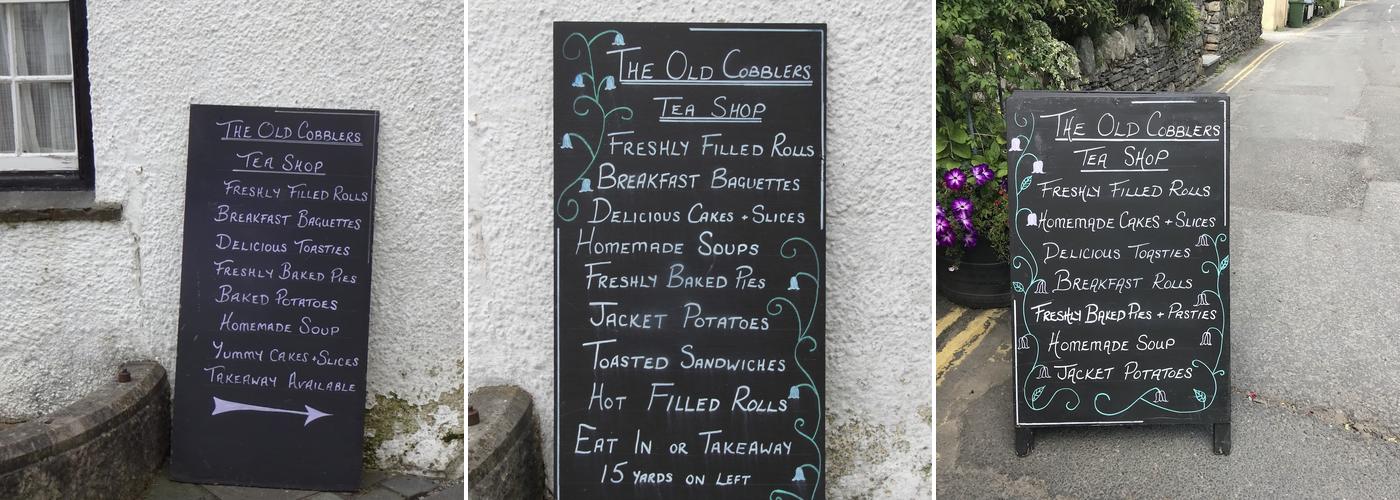 The Old Cobblers
Tea Shop
Freshly Filled Rolls
Breakfast Baguettes
Delicious Toasties
Freshly Baked Pies
Baked Potatoes
Homemade Soup
Yummy Cakes + Slices
Takeaway Available
The Old Cobblers
Tea Shop
Freshly Filled Rolls
Breakfast Baguettes
Delicious Cakes + Slices
Homemade Soups
Freshly Baked Pies
Jacket Potatoes
Toasted Sandwiches
Hot Filled Rolls
Eat In or Takeaway
15 yards on left
The Old Cobblers
Tea Shop
Freshly Filled Rolls
Homemade Cakes + Slices
Delicious Toasties
Breakfast Rolls
Freshly Baked Pies + Pasties
Homemade Soup
Jacket Potatoes